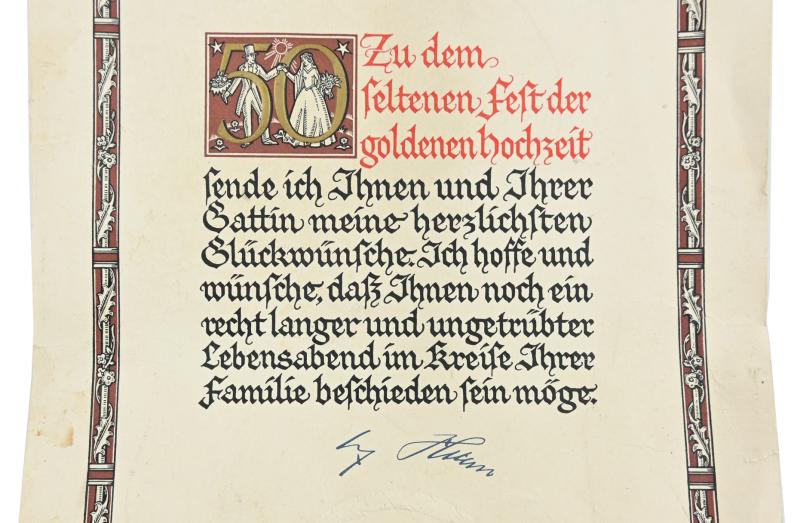 50
Zu dem
seltenen Fest der
goldenen Hochzeit
sende ich Ihnen und Ihrer
Gattin meine herzlichsten
Glückwünsche. Ich hoffe und
wünsche, daß Ihnen noch ein
recht langer und ungetrübter
Lebensabend im Kreise Ihrer
Familie beschieden sein möge.